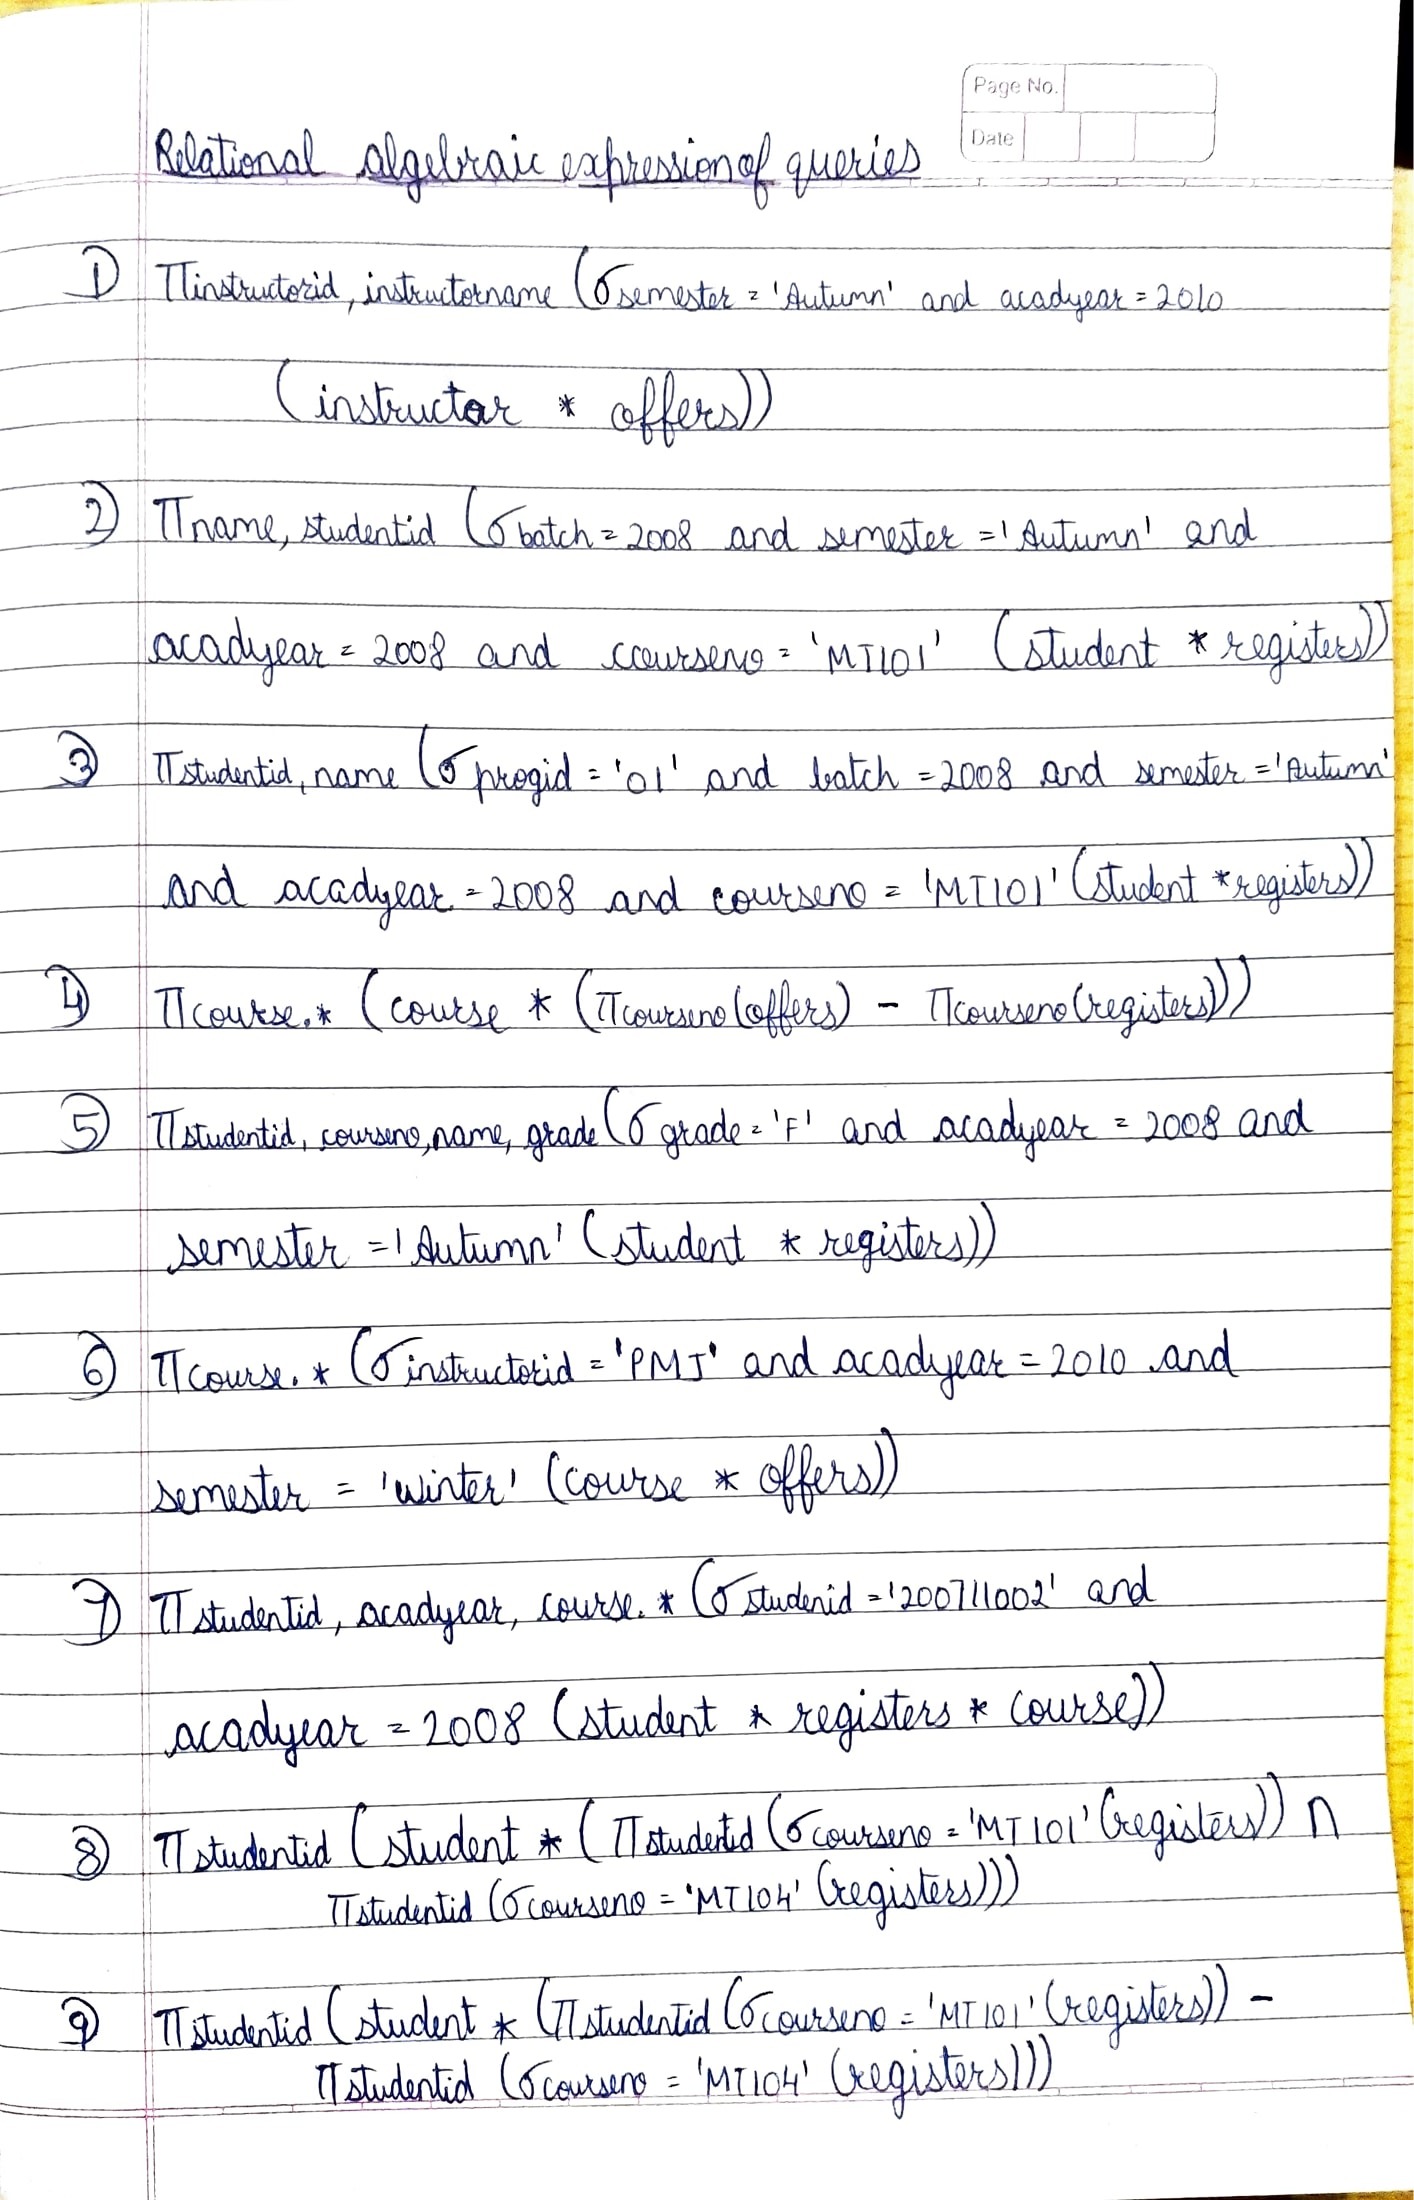 Page No.
Date
Relational algebraic expression of queries
1) Πinstructorid, instructorname (σsemester = 'Autumn' and acadyear = 2010
(instructor * offers))
2) Πname, studentid (σbatch = 2008 and semester = 'Autumn' and
acadyear = 2008 and courseno = 'MT101' (student * registers))
3) Πstudentid, name (σprogid = '01' and batch = 2008 and semester = 'Autumn'
and acadyear = 2008 and courseno = 'MT101' (student * registers))
4) Πcourse.* (course * (Πcourseno (offers) - Πcourseno (registers)))
5) Πstudentid, courseno, name, grade (σgrade = 'F' and acadyear = 2008 and
semester = 'Autumn' (student * registers))
6) Πcourse.* (σinstructorid = 'PMJ' and acadyear = 2010 and
semester = 'winter' (course * offers))
7) Πstudentid, acadyear, course.* (σstudenid = '200711002' and
acadyear = 2008 (student * registers * course))
8) Πstudentid (student * (Πstudentid (σcourseno = 'MT101' (registers)) ∩
Πstudentid (σcourseno = 'MT104' (registers)))
9) Πstudentid (student * (Πstudentid (σcourseno = 'MT101' (registers)) -
Πstudentid (σcourseno = 'MT104' (registers)))